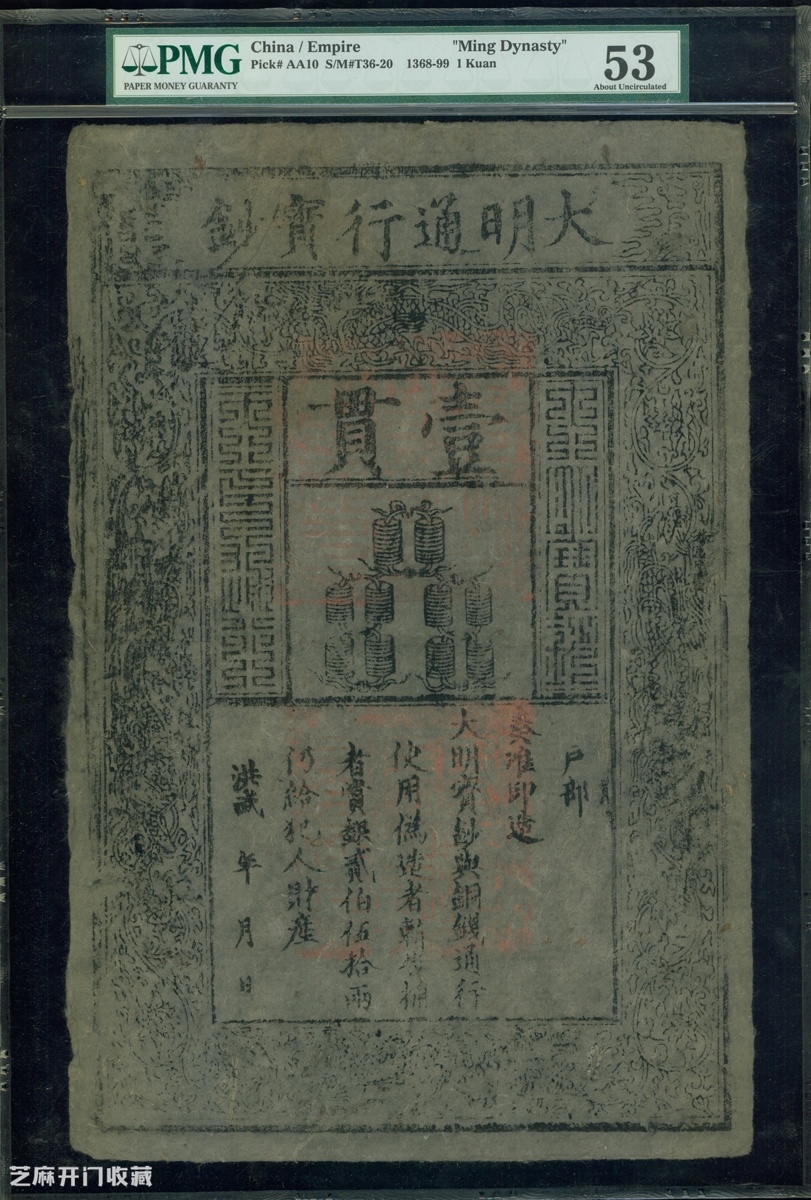 PMG
PAPER MONEY GUARANTY
China / Empire "Ming Dynasty"
Pick# AA10 S/M#T36-20 1368-99 1 Kuan
53
About Uncirculated
大明通行寳鈔
壹貫
戶部
奏准印造
大明寳鈔與銅錢通行
使用偽造者斬告捕
者賞銀貳伯伍拾兩
仍給犯人財產
洪武 年 月 日
芝麻开门收藏